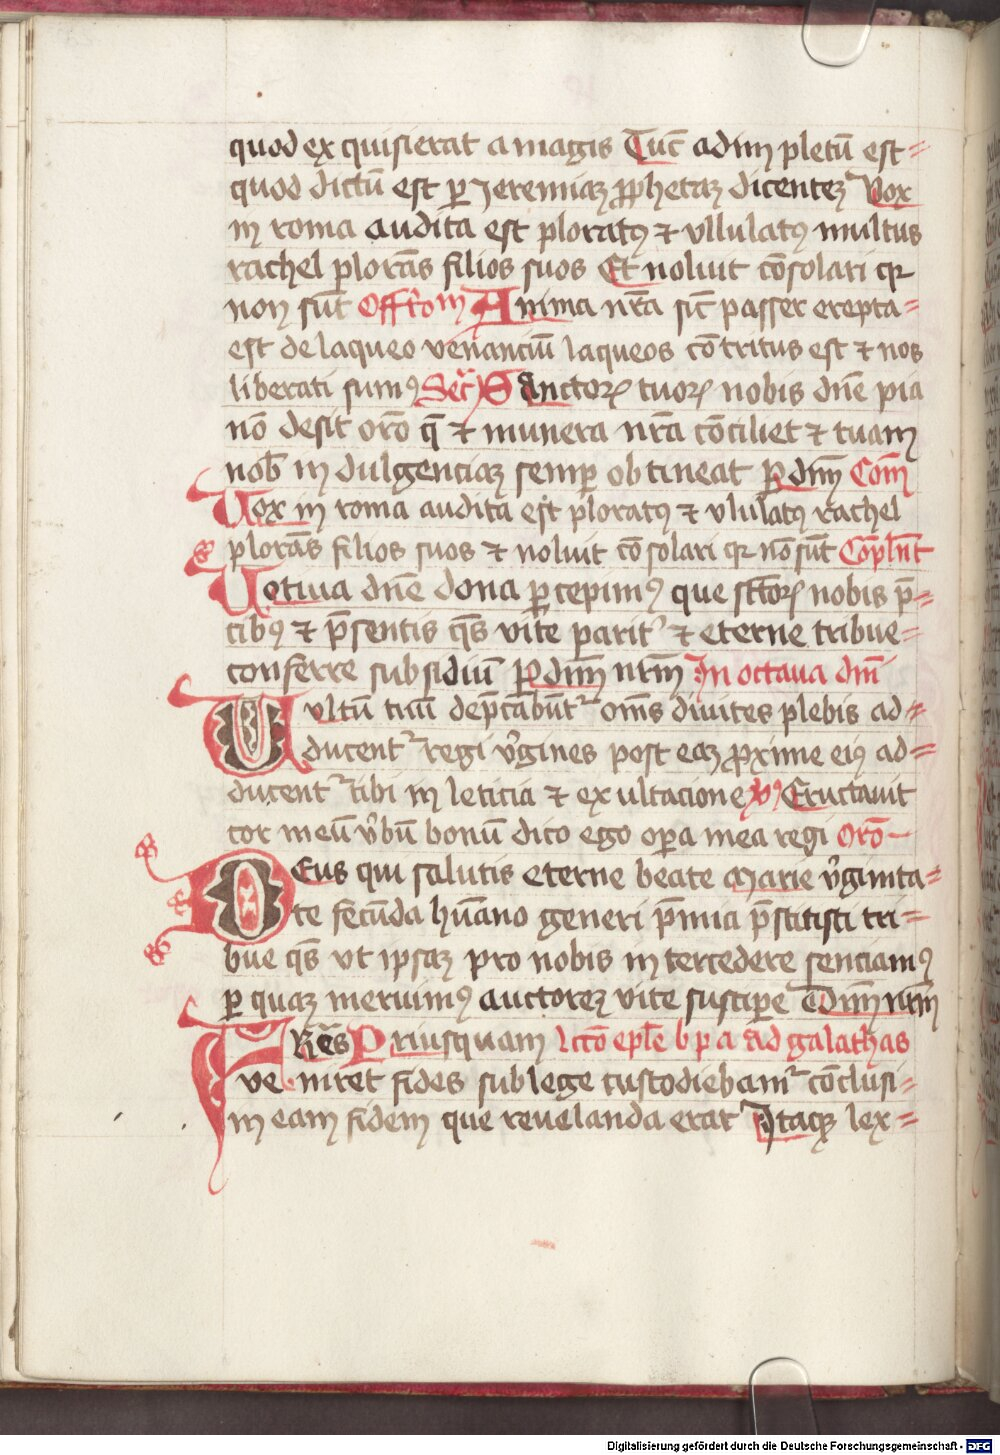 quod exquisierat a magis Tūc adim pletū est=
quod dictū est ꝑ Jeremiaꝫ ꝓphetaꝫ dicenteꝫ Vox
in roma audita est ploratꝰ ⁊ vllulatꝰ multus
rachel plorās filios suos Et noluit cōsolari qꝛ
non sūt Offr̄om Anima nr̄a sic̄ passer erepta=
est de laqueo venanciū laqueos cōtritus est ⁊ nos
liberati sumꝰ Secr̄ Sanctoꝝ tuoꝝ nobis dn̄e pia
nō desit orō q̄ ⁊ munera nr̄a cōciliet ⁊ tuam
nob̄ indulgenciaꝫ semꝑ obtineat ꝑ dm̄ Com̄
Vox in roma audita est ploratꝰ ⁊ vlulatꝰ rachel
plorās filios suos ⁊ noluit cōsolari qꝛ nō sūt Cōpln̄t
Uotiua dn̄e dona ꝑcepimꝰ que sc̄toꝝ nobis p̄=
cibꝰ ⁊ p̄sentis q̄s vite parit᷑ ⁊ eterne tribue=
conferre subsidiū ꝑ dm̄ nrm̄ In octaua dm̄i
Vultū tuū dep̄cabūt᷑ om̄s diuites plebis ad=
ducent᷑ regi v̄gines post eaꝫ ꝓxime eiꝰ ad=
ducent᷑ tibi in leticia ⁊ exultacione v̄ꝰ Eructauit
cor meū v̄bū bonū dico ego oꝑa mea regi Orō
Deus qui salutis eterne beate Marie v̄ginita=
te fecūda hūano generi p̄mia p̄stitisti tri=
bue q̄s vt ipsaꝫ pro nobis intercedere senciamꝰ
ꝑ quaꝫ meruimꝰ auctoreꝫ vite susciꝑe Dm̄ nrm̄
Frēs Priusquam lc̄o epl̄e b p a ad galathas
veniret fides sub lege custodiebam᷑ cōclusi=
in eam fidem que reuelanda erat Itaqꝫ lex=
Digitalisierung gefördert durch die Deutsche Forschungsgemeinschaft - DFG